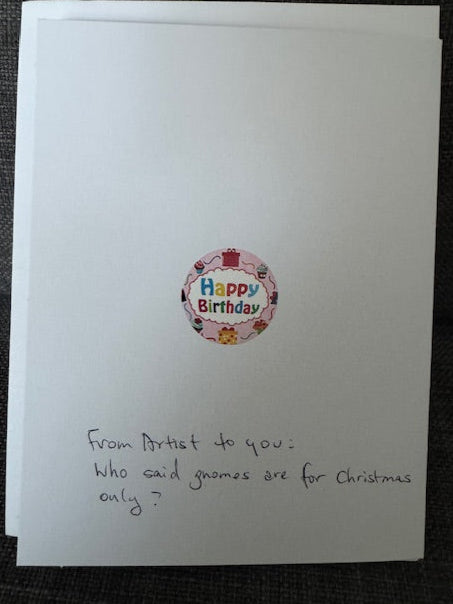 Happy
Birthday
From Artist to you:
Who said gnomes are for Christmas
only?